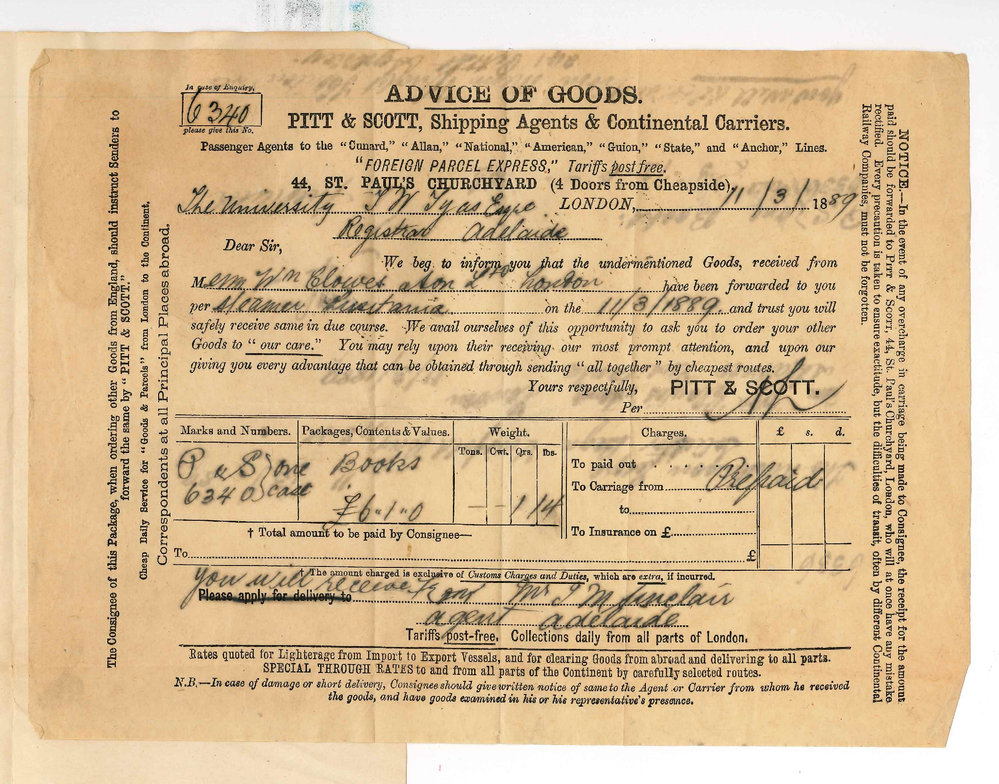 In case of Enquiry,
6340
please give this No.
ADVICE OF GOODS.
PITT & SCOTT, Shipping Agents & Continental Carriers.
Passenger Agents to the "Cunard," "Allan," "National," "American," "Guion," "State," and "Anchor," Lines.
"FOREIGN PARCEL EXPRESS," Tariffs post free.
44, ST. PAUL'S CHURCHYARD (4 Doors from Cheapside),
The University T W Tyas Esqre LONDON, 11/3/1889
Registrar Adelaide
Dear Sir,
We beg to inform you that the undermentioned Goods, received from
Messrs Wm Clowes & Son Ltd London have been forwarded to you
per Steamer Lusitania on the 11/3/1889. and trust you will
safely receive same in due course. We avail ourselves of this opportunity to ask you to order your other
Goods to "our care." You may rely upon their receiving our most prompt attention, and upon our
giving you every advantage that can be obtained through sending "all together" by cheapest routes.
Yours respectfully, PITT & SCOTT.
Per
Marks and Numbers. Packages, Contents & Values. Weight. Charges. £ s. d.
Tons. Cwt. Qrs. lbs.
P & S one Books
6340 case
£6"1"0 - - 1 14
To paid out
To Carriage from Prepaid
to
To Insurance on £
† Total amount to be paid by Consignee—
To £
† The amount charged is exclusive of Customs Charges and Duties, which are extra, if incurred.
You will receive
Please apply for delivery to from Mr T M Sinclair
agent Adelaide
Tariffs post-free. Collections daily from all parts of London.
Rates quoted for Lighterage from Import to Export Vessels, and for clearing Goods from abroad and delivering to all parts.
SPECIAL THROUGH RATES to and from all parts of the Continent by carefully selected routes.
N.B.—In case of damage or short delivery, Consignee should give written notice of same to the Agent or Carrier from whom he received
the goods, and have goods examined in his or his representative's presence.
The Consignee of this Package, when ordering other Goods from England, should instruct Senders to
forward the same by "PITT & SCOTT."
Cheap Daily Service for "Goods & Parcels" from London to the Continent.
Correspondents at all Principal Places abroad.
NOTICE.—In the event of any overcharge in carriage being made to Consignee, the receipt for the amount
paid should be forwarded to PITT & SCOTT, 44, St. Paul's Churchyard, London, who will at once have any mistake
rectified. Every precaution is taken to ensure exactitude, but the difficulties of transit, often by different Continental
Railway Companies, must not be forgotten.